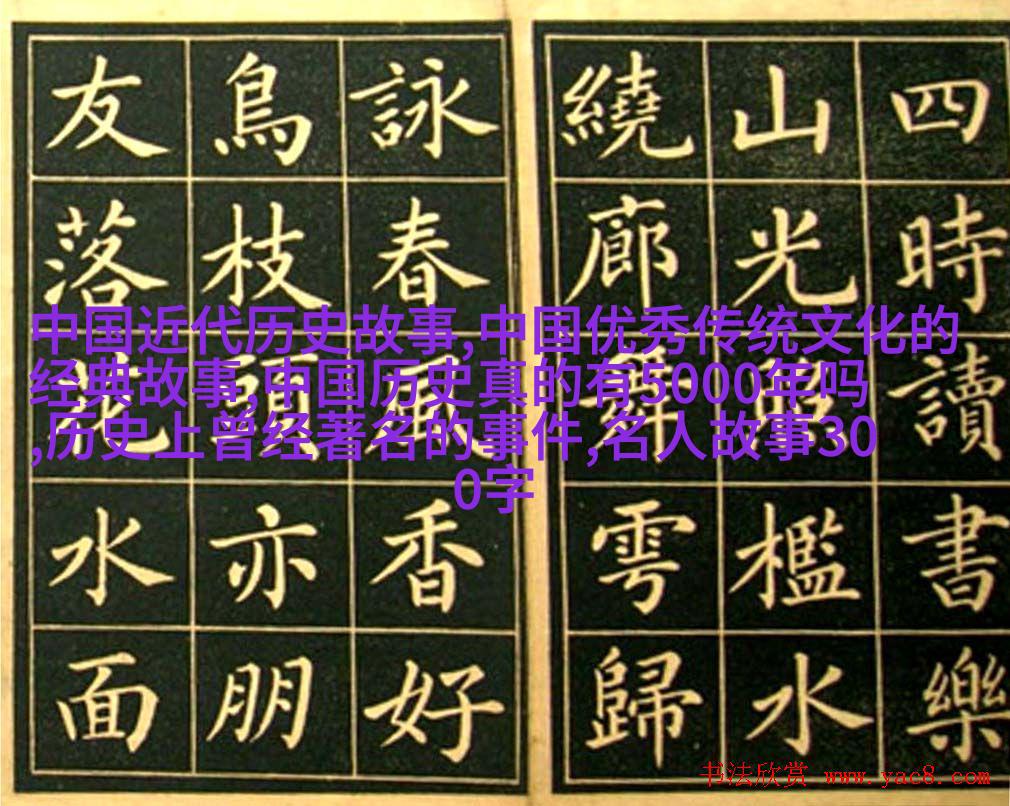 四時讀書樂
山光照檻水
繞廊舞雩歸
詠春風香好
鳥枝頭亦朋
友落花水面
中国近代历史故事,中国优秀传统文化的
经典故事,中国历史真的有5000年吗
,历史上曾经著名的事件,名人故事30
0字
书法欣赏 www.yac8.com